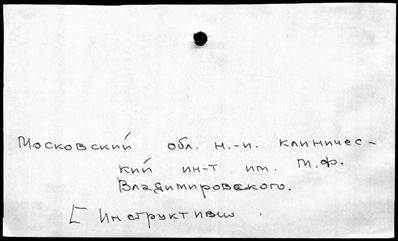 Московский обл. н.-и. клиничес-
кий ин-т им. М.Ф.
Владимировского.
[ Инструктивно .